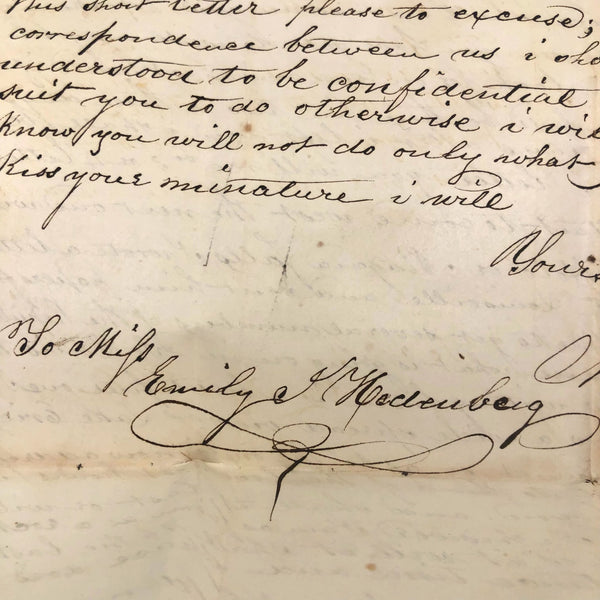 this short letter please to excuse;
correspondence between us i sho
understood to be confidential
suit you to do otherwise i wil
Know you will not do only what
Kiss your minature i will
Yours
To Miss
Emily I Hedenberg